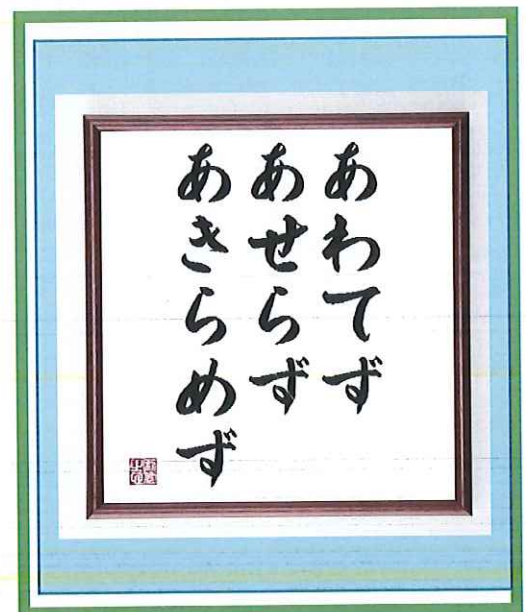 あわてず
あせらず
あきらめず